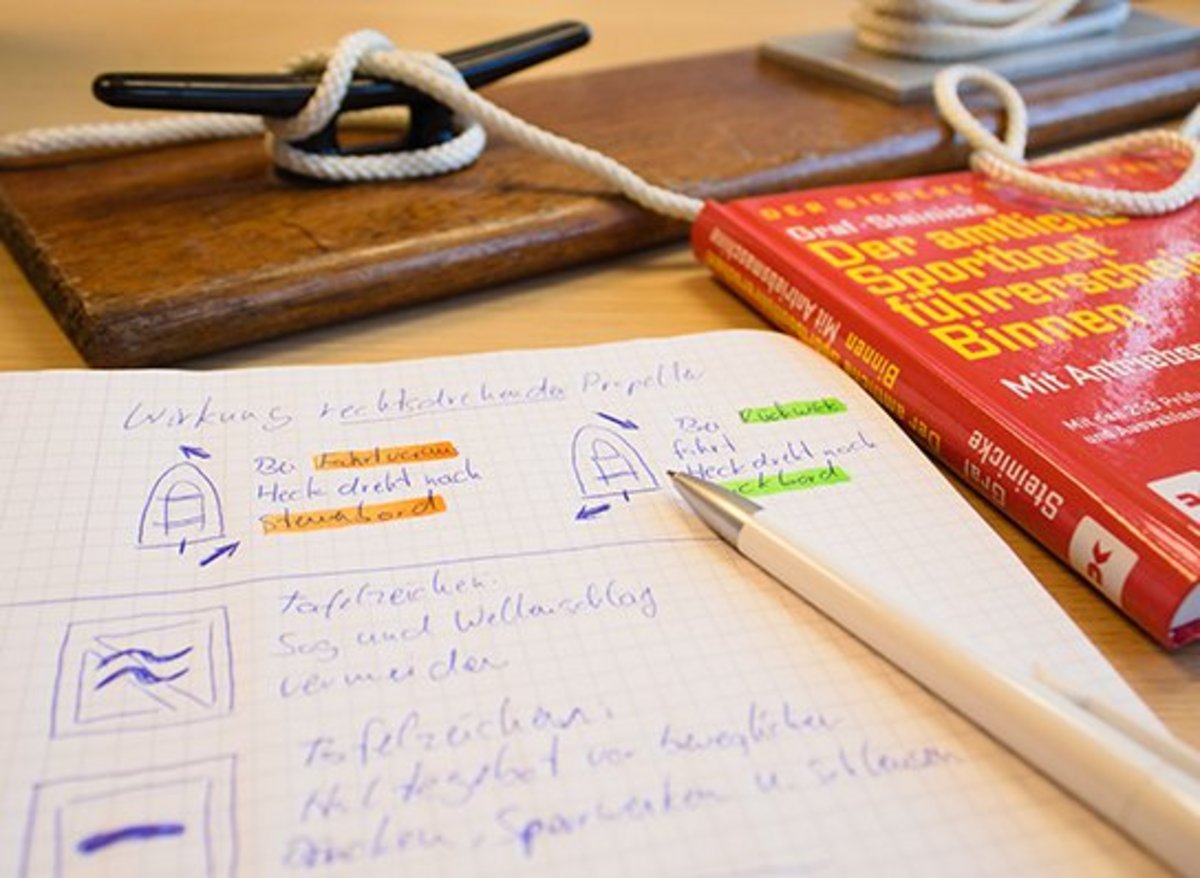 Graf · Steinicke
Der amtliche
Sportboot
führerschein
Binnen
Mit Antriebs
Graf
Steinicke
Der
Binnen
Mit Antriebsmaschine
Wirkung rechtsdrehender Propeller
Bei Fahrtvoraus
Heck dreht nach
Steuerbord
Bei Rückwärts
fahrt
Heck dreht nach
ckbord
Tafelzeichen:
Sog und Wellenschlag
vermeiden
Tafelzeichen:
Haltegebot vor beweglichen
Brücken, Sperrwerken u. Schleusen